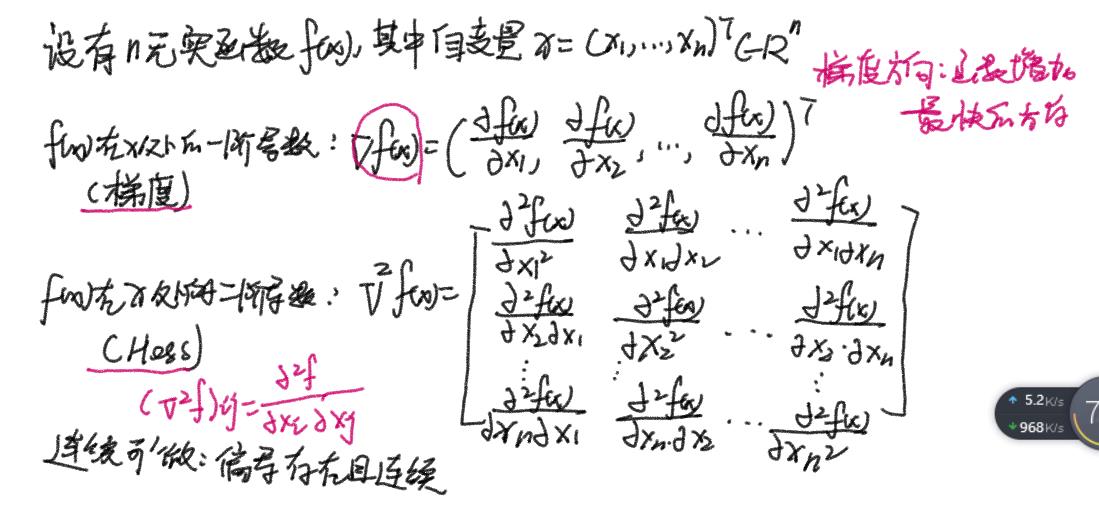 设有n元实函数f(x),其中自变量x=(x₁,…,xₙ)ᵀ∈Rⁿ
梯度方向:函数增加
最快的方向
f(x)在x处的一阶导数:∇f(x)=(∂f(x)/∂x₁, ∂f(x)/∂x₂, …, ∂f(x)/∂xₙ)ᵀ
(梯度)
f(x)在x处的二阶导数:∇²f(x)=
[∂²f(x)/∂x₁² ∂²f(x)/∂x₁∂x₂ … ∂²f(x)/∂x₁∂xₙ
∂²f(x)/∂x₂∂x₁ ∂²f(x)/∂x₂² … ∂²f(x)/∂x₂·∂xₙ
⋮ ⋮ ⋮
∂²f(x)/∂xₙ∂x₁ ∂²f(x)/∂xₙ·∂x₂ … ∂²f(x)/∂xₙ²]
(Hess)
(∇²f)ij=∂²f/∂xi∂xj
连续可微:偏导存在且连续
5.2K/s
968K/s
7